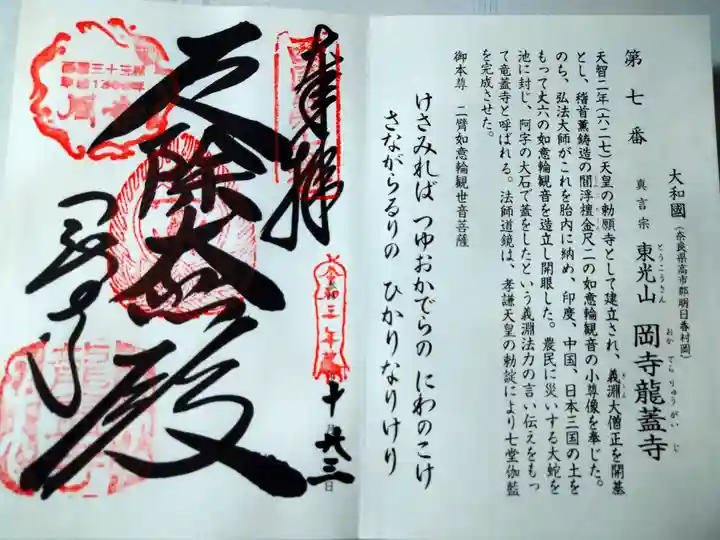 第七番
大和國(奈良県高市郡明日香村岡)
真言宗 東光山 岡寺龍蓋寺
とうこうさん おかでらりゅうがいじ
天智二年(六二七)天皇の勅願寺として建立され、義淵大僧正を開基
とし、稽首薫鋳造の閻浮檀金尺二の如意輪観音の小尊像を奉じた。
のち、弘法大師がこれを胎内に納め、印度、中国、日本三国の土を
もって丈六の如意輪観音を造立し開眼した。農民に災いする大蛇を
池に封じ、阿字の大石で蓋をしたという義淵法力の言い伝えをもっ
て竜蓋寺と呼ばれる。法師道鏡は、孝謙天皇の勅諚により七堂伽藍
を完成させた。
御本尊 二臂如意輪観世音菩薩
けさみれば つゆおかでらの にわのこけ
さながらるりの ひかりなりけり
奉拝
令和三年
十月廿三日
厄除大悲殿
岡寺
西国三十三所
草創1300年